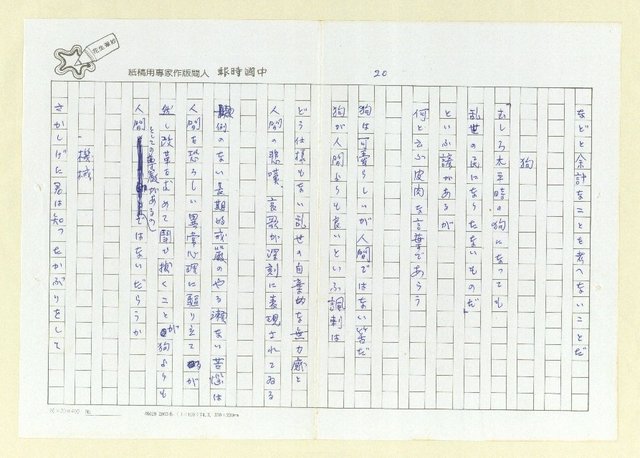 中國時報 人間版作家專用稿紙
20
などと余計なことを考へないことだ
狗
むしろ太平時の狗になっても
乱世の民にはなりたくないものだ」
といふ諺があるが
何と云ふ皮肉な言葉であらう
狗は可愛らしいが人間ではない筈だ
狗が人間よりも良いといふ諷刺は
どう仕様もない乱世の自棄的な無力感と
人間の悲嘆、哀歌が深刻に表現されてゐる
例のない長期的戒厳のやり瀬ない苦悩は
人間を恐ろしい異常心理に駆り立てるが
然し改革を求めて闘ひ抜くことが狗よりも
人間としての尊厳があるのではないだらうか
機械
さかしげに君は知ったかぶりをして